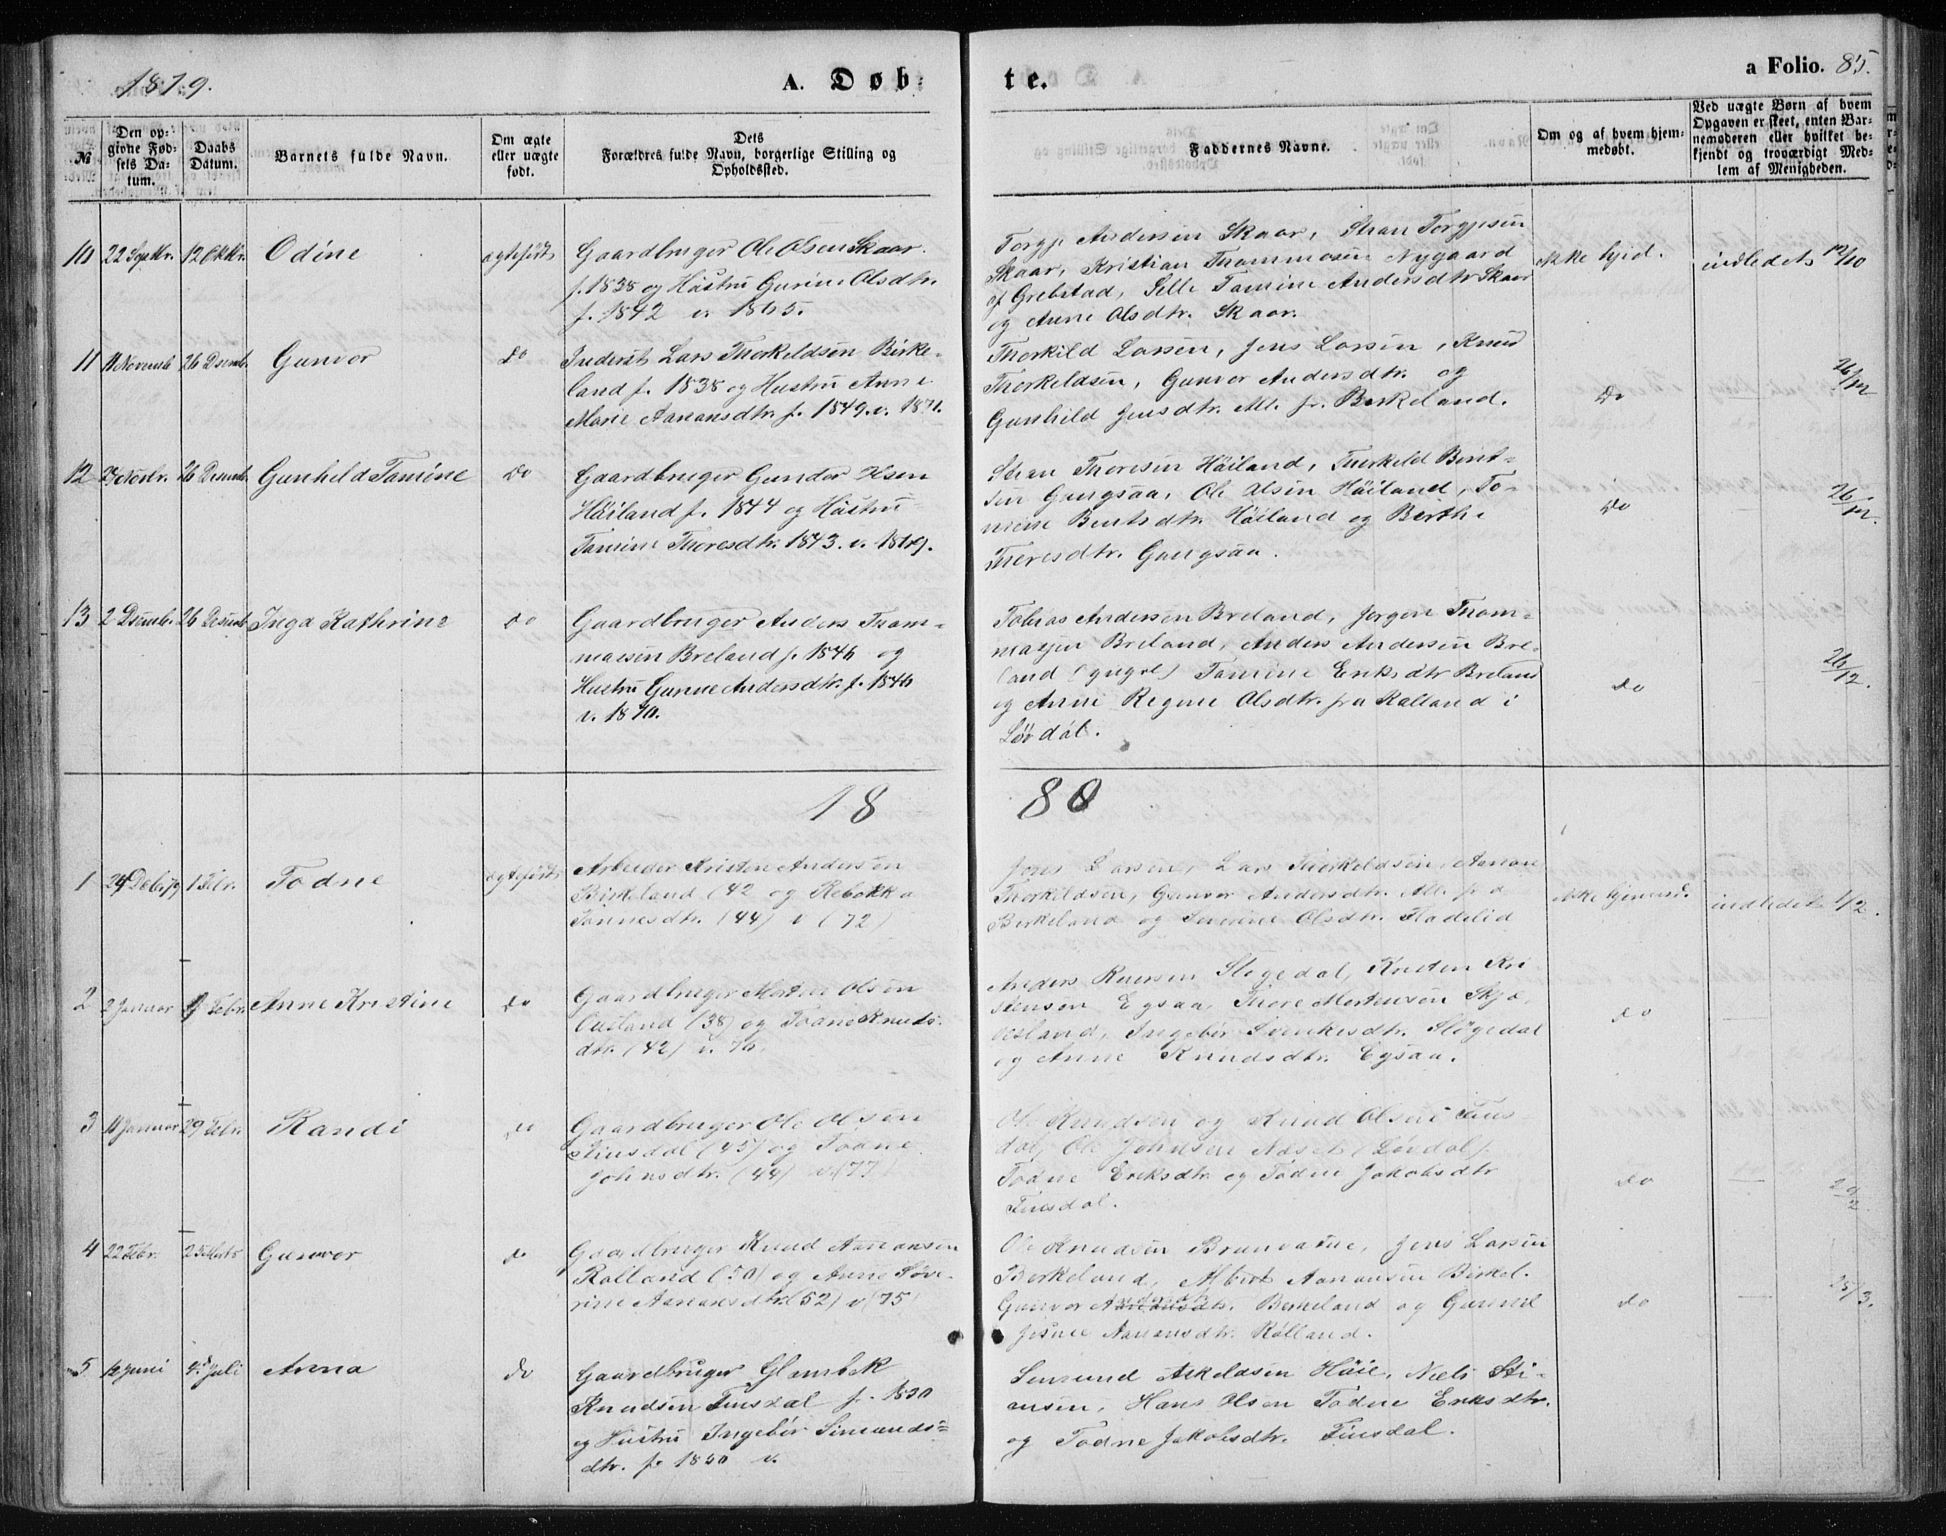 1879.
A. Døb-
te.
a Folio. 85.
№
Den op-
givne Fød-
sels Da-
tum.
Daabs
Datum.
Barnets fulde Navn.
Om ægte
eller uægte
født.
Dets
Forældres fulde Navn, borgerlige Stilling og
Opholdssted.
Faddernes Navne.
Om og af hvem hjem-
medøbt.
Ved uægte Børn af hvem
Opgaven er skeet, enten Bar-
nemoderen eller hvilket be-
kjendt og troværdigt Med-
lem af Menigheden.
10 22 Septbr. 12 Oktbr. Odine ægtefødt
Gaardbruger Ole Olsen Skaar
f. 1838 og Hustru Gurine Olsdtr.
f. 1842 v. 1865.
Torgje Andersen Skaar, Stian Torgjesen
Skaar, Kristian Tommesen Nygaard
af Grebstad, Sille Tomine Andersdtr Skaar
og Anne Olsdtr. Skaar.
ikke hjd. indledet 12/10
11 11 Novemb 26 Desemb. Gunvor do
Inderst Lars Thorkeldsen Birke-
land f. 1838 og Hustru Anne
Marie Aanansdtr. f. 1849. v. 1871.
Thorkild Larsen, Jens Larsen, Knud
Thorkeldsen, Gunvor Andersdtr. og
Gunhild Jensdtr. All. fr. Berkeland.
Do 26/12
12 Novbr. 26 Desemb. Gunhild Tomine Do
Gaardbruger Gunder Olsen
Høiland f. 1844 og Hustru
Tomine Thoresdtr. 1843. v. 1869.
Stian Thoresen Høiland, Torkild Bent-
sen Gangsaa, Ole Olsen Høiland, To-
mine Bentsdtr. Høiland og Berthe
Thoresdtr. Gangsaa.
Do 26/12.
13 2 Desemb. 26 Desemb Inga Kathrine do
Gaardbruger Anders Thom-
massen Breland f. 1846 og
Hustru Gunne Andersdtr. f. 1846
v. 1870.
Tobias Andersen Breland, Jørgen Thom-
massen Breland, Anders Andersen Bre-
land (yngre) Tomine Eriksdtr Breland
og Anne Regine Olsdtr. fra Kalland i
Løvdal.
do 26/12.
18 80
1 24 Debr. 79 1 Febr. Todne ægtefødt
Arbeider Kristen Andersen
Birkeland (42 og Rebekka
Tonnesdtr. (44) v (72)
Jens Larsen, Lars Thorkeldsen, Aanon
Thorkildsen, Gunvor Andersdtr. All. fra
Berkeland og Severine Olsdtr. Fladelid
ikke hjemmed. indledet 1/2.
2 2 Januar Febr. Anne Kristine do
Gaardbruger Morten Olsen
Ouland (38) og Toane Knuds-
dtr. (42) v. 70.
Anders Knersen Sløgedal, Kristen Kri
stensen Egsaa, Thore Mortensen Skjæ-
vesland, Ingebor Svenkesdtr. Sløgedal
og Anne Knudsdtr. Egsaa.
do
3 10 Januar 29 Febr. Randi do
Gaardbruger Ole Olsen
Finsdal (45) og Toane
Johnsdtr. (44) v. (77)
Ole Knudsen og Knud Olsen Fins-
dal, Ole Johnsen Næset (Løvdal)
Todne Eriksdtr og Todne Jakobsdtr
Finsdal.
do 29/2
4 22 Febr. 25 Marts Gunvor do
Gaardbruger Knud Aanonsen
Rolland (50) og Anne Seve-
rine Aanonsdtr (52) v (75)
Ole Knudsen Brunvatne, Jens Larsen
Berkeland, Albert Aanonsen Birkel.
Gunvor Andersdtr. Berkeland og Gunvel
Josine Aanansdtr. Rølland.
do 25/3.
5 12 Juni 4. Juli Anna do
Gaardbruger Glambek
Knudsen Finsdal f. 1830
og Hustru Ingebor Simunds-
dtr. f. 1850 v.
Simund Askeldsen Høie, Niels Sti-
ansen, Hans Olsen Todne Eriksdtr.
og Todne Jakobsdtr. Finsdal.